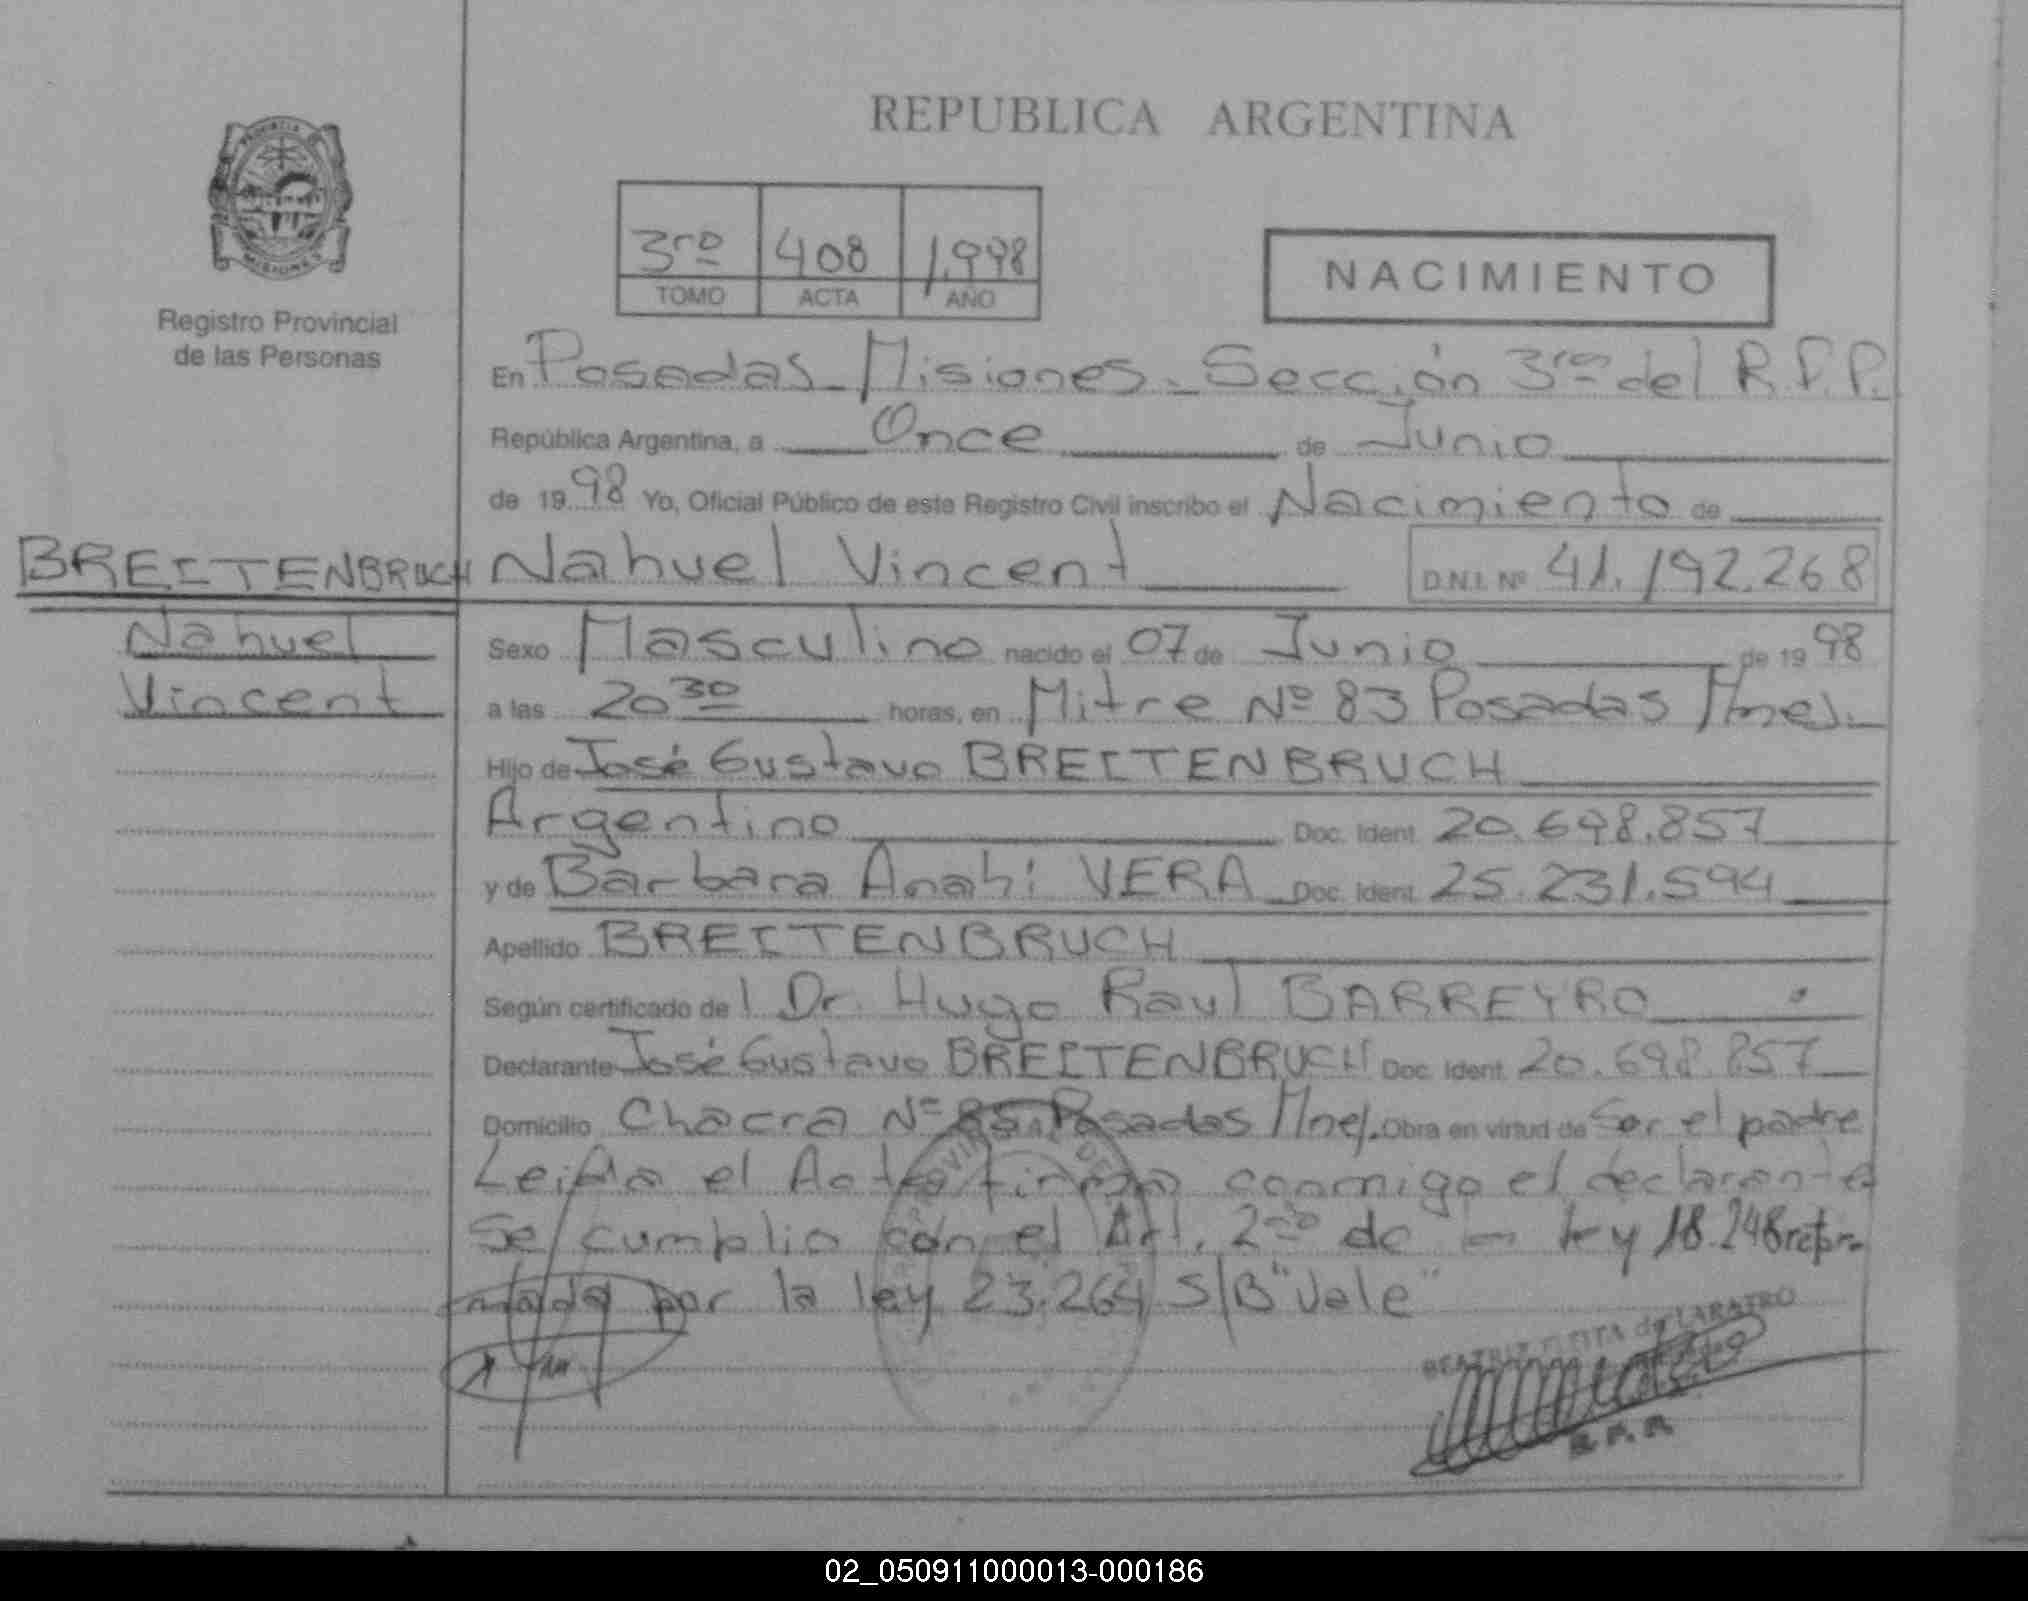 REPUBLICA ARGENTINA
PROVINCIA
MISIONES
Registro Provincial
de las Personas
3ro 408 1.998
TOMO ACTA AÑO
NACIMIENTO
En Posadas Misiones. Sección 3ra del R.P.P.
República Argentina, a Once de Junio
de 1998 Yo, Oficial Público de este Registro Civil inscribo el Nacimiento de
BREITENBRUCH Nahuel Vincent D.N.I. Nº 41.192.268
Nahuel
Vincent
Sexo Masculino nacido el 07 de Junio de 1998
a las 20 30 horas, en Mitre Nº 83 Posadas Mnes.
Hijo de José Gustavo BREITENBRUCH
Argentino Doc. Ident. 20.698.857
y de Bárbara Anahí VERA Doc. Ident. 25.231.594
Apellido BREITENBRUCH
Según certificado de l Dr. Hugo Raul BARREYRO
Declarante José Gustavo BREITENBRUCH Doc. Ident. 20.698.857
Domicilio Chacra Nº 85 Posadas Mnes. Obra en virtud de Ser el padre
Leida el Acta firma conmigo el declarante
Se cumplio con el Art. 2do de la ley 18.248 refor-
mada por la ley 23.264 S/B "Vale"
BEATRIZ
02_050911000013-000186